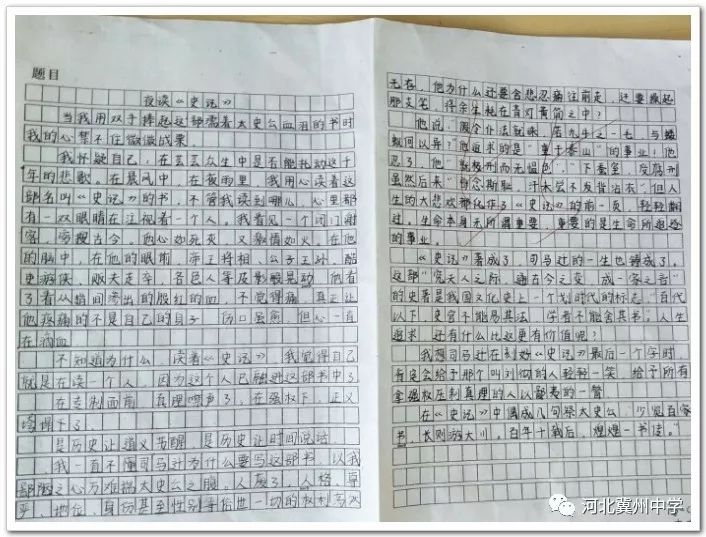 题目
夜读《史记》
当我用双手捧起这部濡着太史公血泪的书时
我的心禁不住微微战栗。
我怀疑自己，在芸芸众生中是否能托动这千
年的悲歌。在晨风中，在夜雨里，我用心读着这
部名叫《史记》的书，不管我读到哪儿，心里都
有一双眼睛在注视着一个人，我看见一个闭门谢
客，旁搜古今。他心如死灰，又激情如火，在他
的脑中，在他的眼前，帝王将相，公子王孙，酷
吏游侠，贩夫走卒，各色人等皮影般晃动，他看
了看从指间渗出的殷红的血，不觉得痛，真正让
他疼痛的不是自己的身子，伤口虽愈，但心一直
在滴血
不知道为什么，读着《史记》，我觉得自己
就是在读一个人，因为这个人已融进这部书中了
在专制面前，真理噤声了，在强权下，正义
塌下了
是历史让道义苏醒，是历史让时间说话
我一直不懂司马迁为什么要写这部书，以我
鄙陋之心万难揣太史公之腹。人废了，人格，卓
乎，地位，身份甚至性别等俗世一切的权利
无存，他为什么还要含悲忍痛往前走，还要撅起
那支笔，将余生耗在青灯黄简之中？
他说“假令仆伏法就诛，若九牛亡一毛，与蝼
蚁何以异？”他追求的是“重于泰山”的事业！他
忍了，他“就极刑而无愠色”，“下蚕室，受腐刑
虽然后来“每念斯耻，汗未尝不发背沾衣”但人
生的大悲欢都化作了《史记》的前一页，轻轻翻
过，生命本身无所谓重要，重要的是生命所追逐
的事业。
《史记》著成了，司马迁的一生也铸成了。
这部“究天人之际，通古今之变，成一家之言”
的史著是我国文化史上一个划时代的标志，“百代
以下，史官不能易其法，学者不能舍其书；人生
追求，还有什么比这更有价值呢？
我想司马迁在刻好《史记》最后一个字时，
肯定会给予那个叫刘彻的人轻轻一笑，给予所有
拿强权压制真理的人以鄙夷的一瞥。
在《史记》中偶成几句祭太史公，“少览百家
书，长则游大川。百年十载后，煌煌一书速。”
河北冀州中学